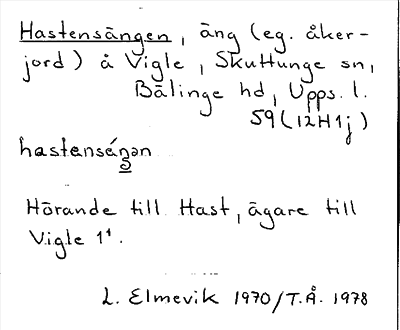 Hastensängen, äng (eg. åker-
jord) å Vigle, Skuttunge sn,
Bälinge hd, Upps. l.
59 (12H1j)
hastenséŋən
Hörande till Hast, ägare till
Vigle 1¹.
L. Elmevik 1970/T.Å. 1978